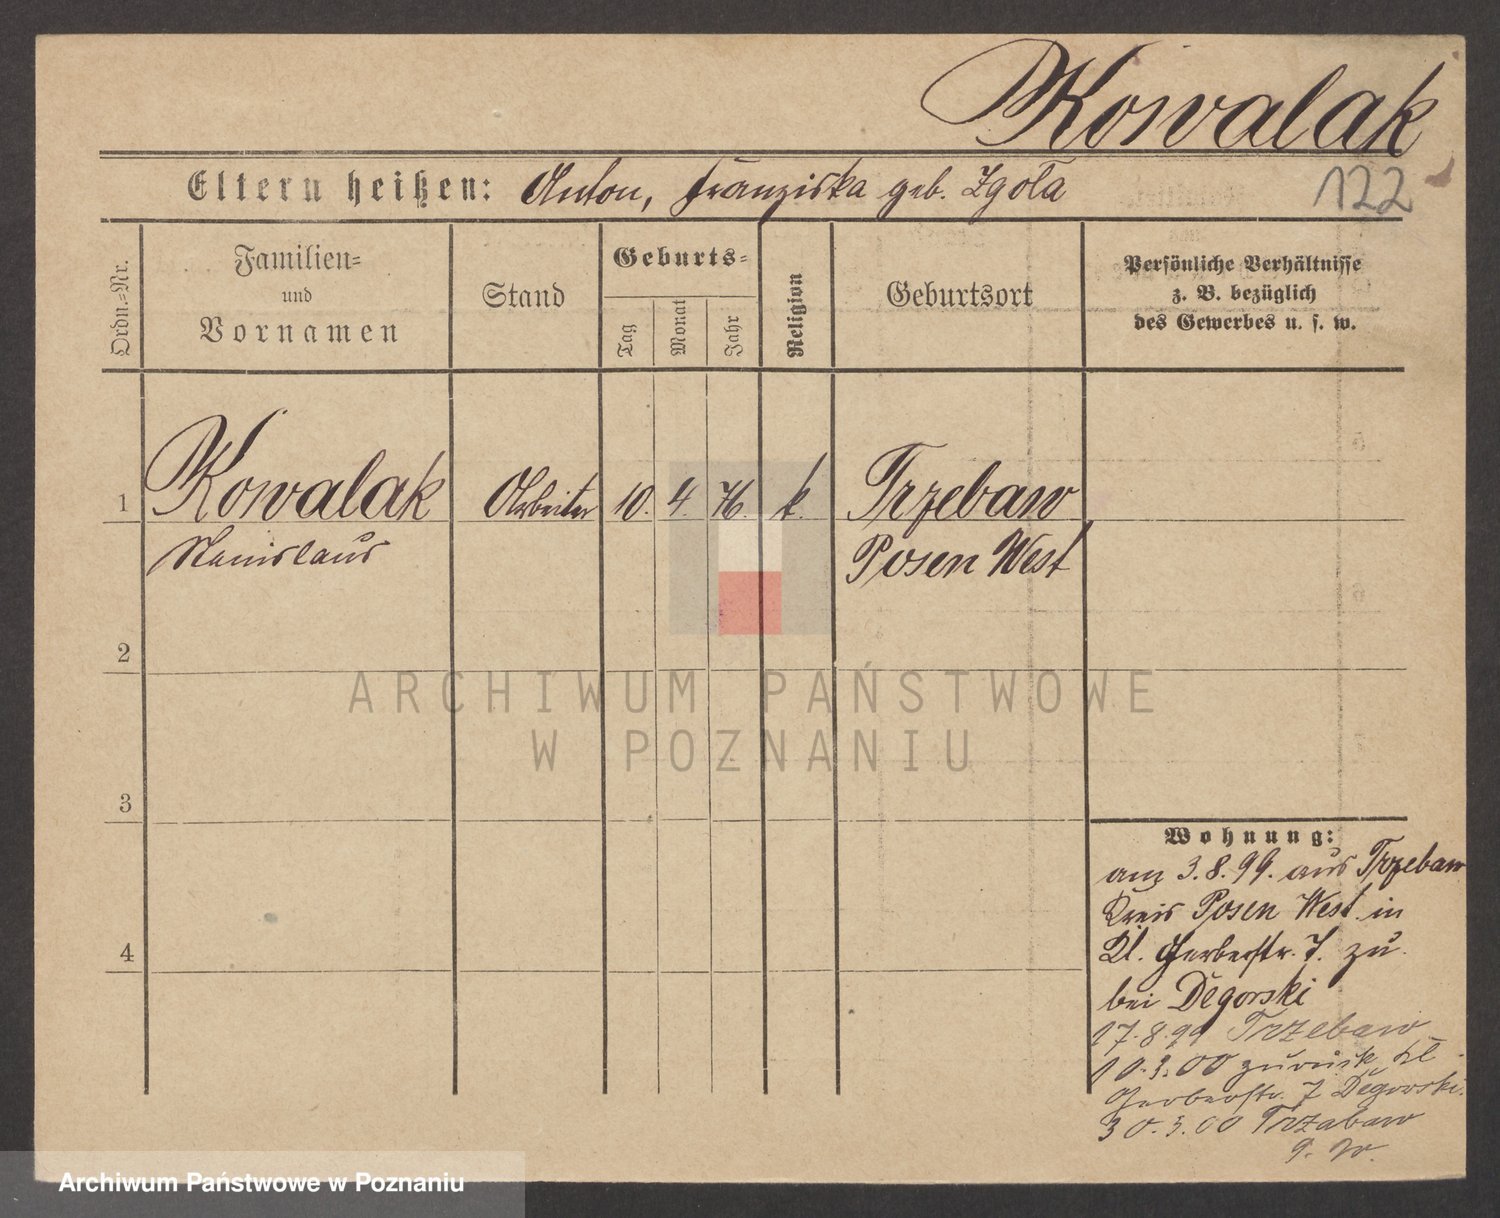 Kowalak
Eltern heißen: Anton, Franziska geb. Zgoła
122
Ordn.-Nr.
Familien-
und
Vornamen
Stand
Geburts-
Tag
Monat
Jahr
Religion
Geburtsort
Persönliche Verhältnisse
z. B. bezüglich
des Gewerbes u. s. w.
1 Kowalak Arbeiter 10. 4. 76. k. Trzebaw
Stanislaus Posen West
2
3
4
Wohnung:
am 3.8.99. aus Trzebaw
Kreis Posen West in
Kl. Gerberstr. 7. zu
bei Degorski
17.8.99 Trzebaw
10.3.00 zurück Kl
Gerberstr. 7 Degorski.
30.3.00 Trzabaw
ARCHIWUM PAŃSTWOWE
W POZNANIU
Archiwum Państwowe w Poznaniu